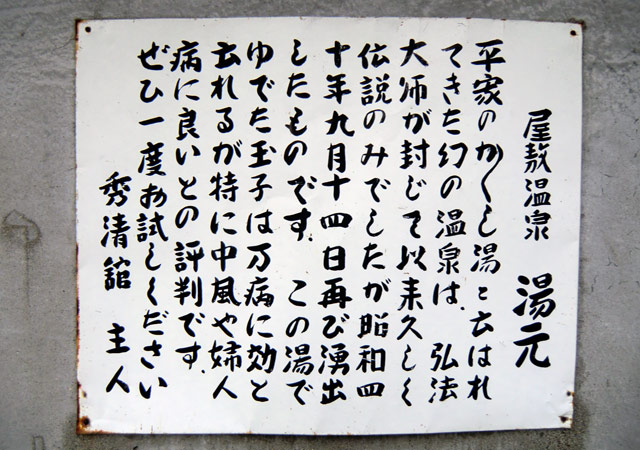 屋敷温泉　湯元
平家のかくし湯と云はれ
てきた幻の温泉は、弘法
大师が封じて以来久しく
伝説のみでしたが昭和四
十年九月十四日再び湧出
したものです。この湯で
ゆでた玉子は万病に効と
云れるが特に中風や婦人
病に良いとの評判です。
ぜひ一度お試しください
秀清舘　主人